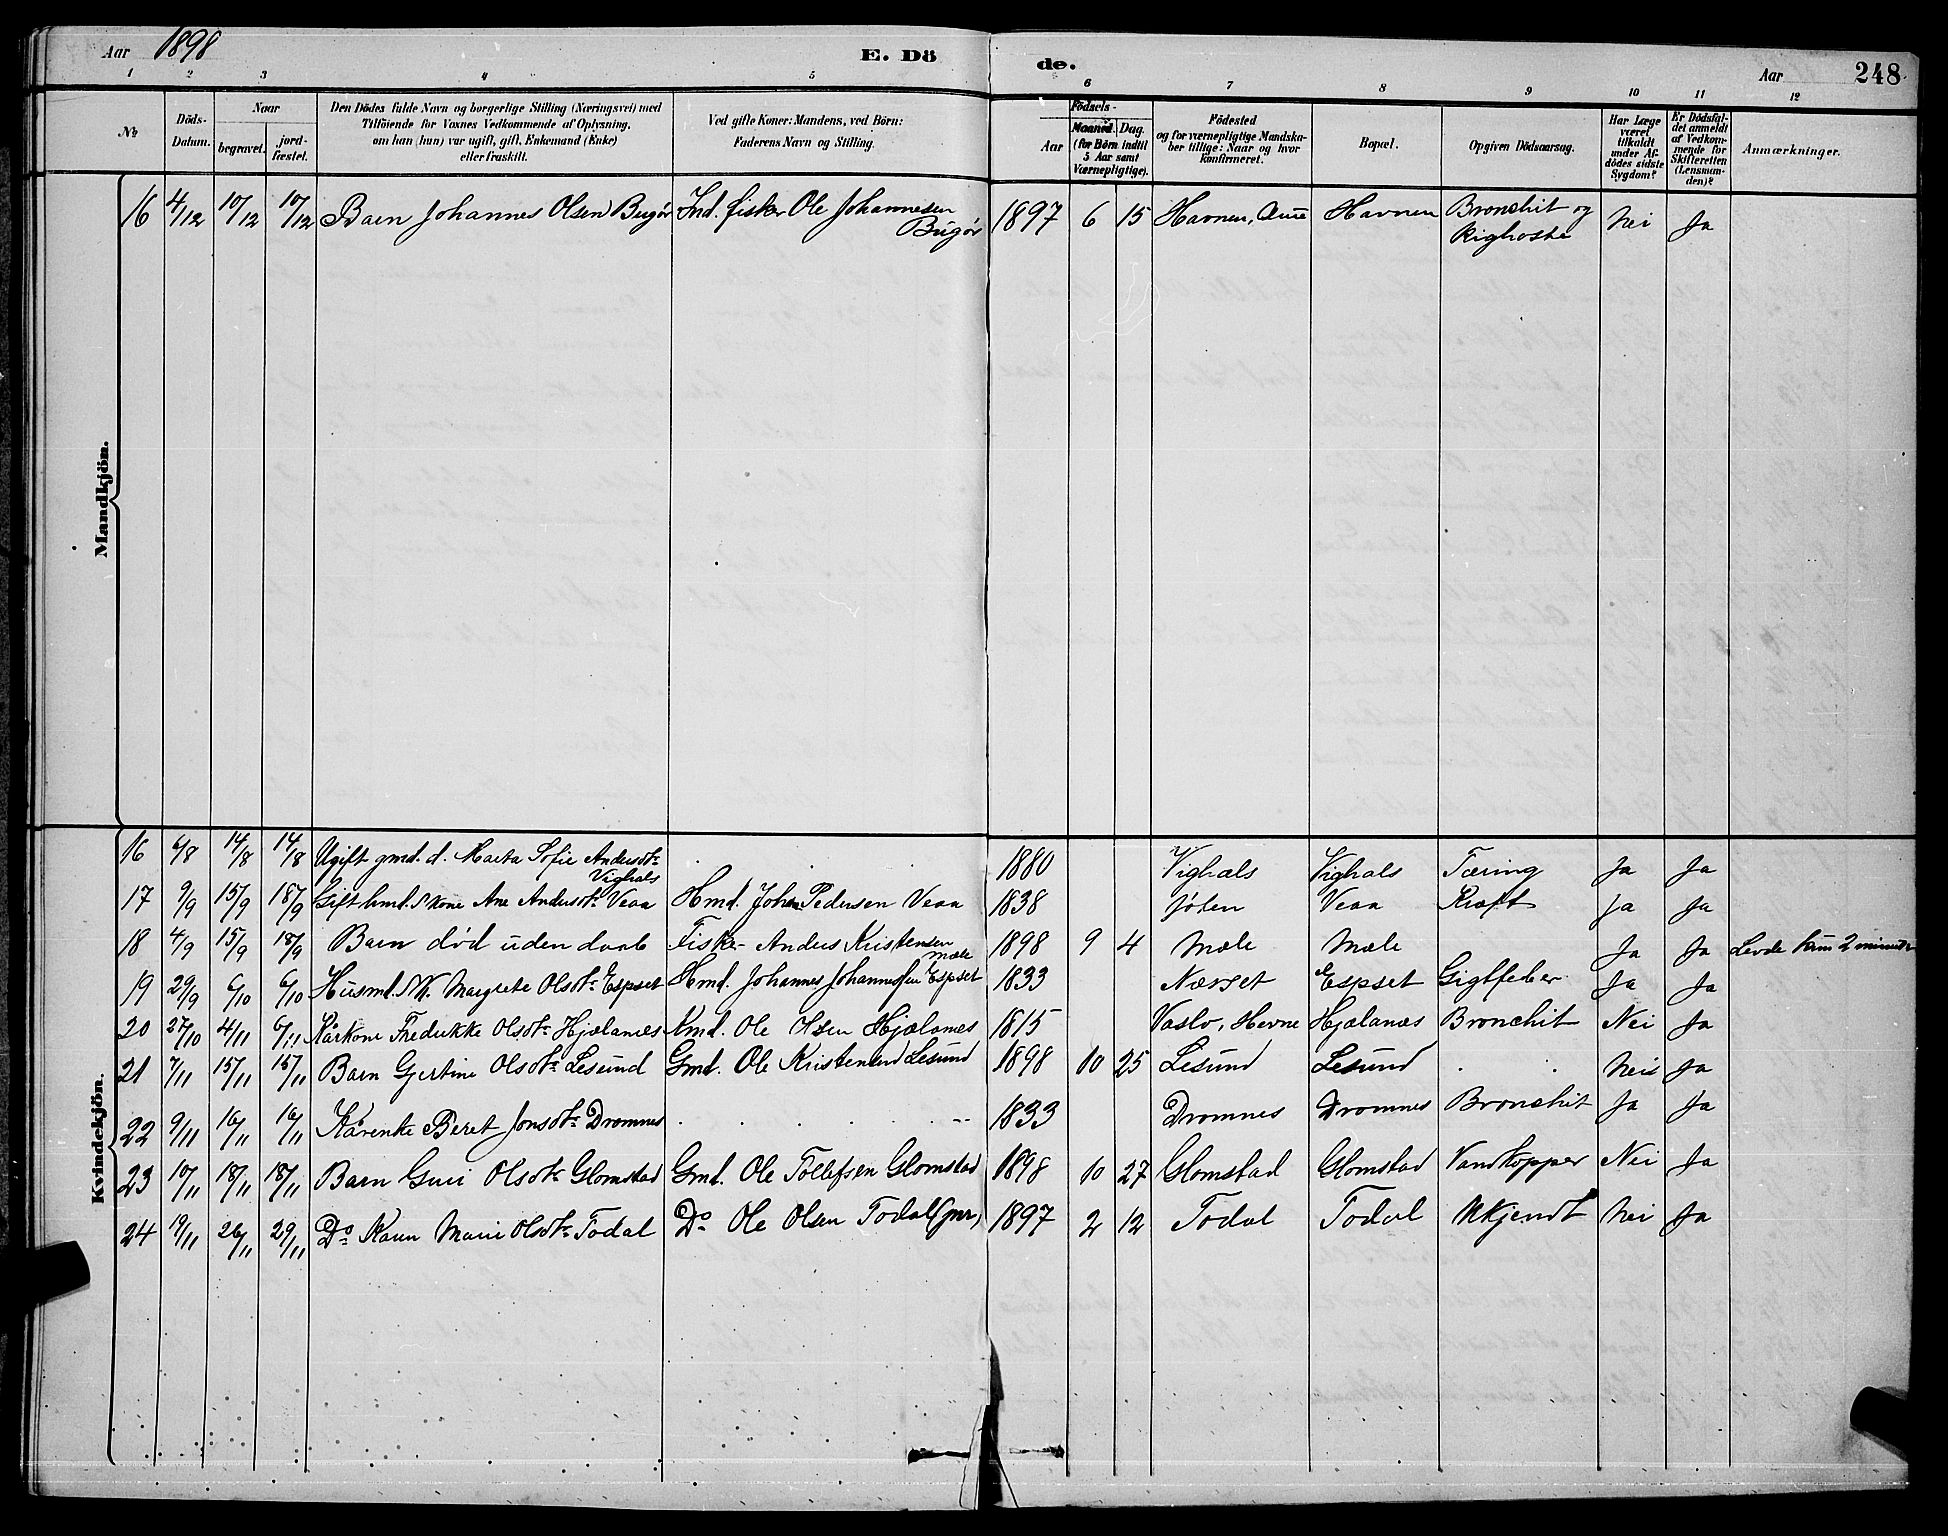 Aar 1898 E. Döde. Aar 248
1 2 3 4 5 6 7 8 9 10 11 12
No
Döds-Datum.
Naar
begravet. jordfæstet.
Den Dödes fulde Navn og borgerlige Stilling (Næringsvei) med
Tilföiende for Voxnes Vedkommende af Oplysning,
om han (hun) var ugift, gift, Enkemand (Enke)
eller fraskilt.
Ved gifte Koner: Mandens, ved Börn:
Faderens Navn og Stilling.
Födsels-
Aar Maaned. Dag.
(for Börn indtil
5 Aar samt
Værnepligtige).
Födested
og for værnepligtige Mandska-
ber tillige: Naar og hvor
konfirmeret.
Bopæl.
Opgiven Dödsaarsag.
Har Læge
været
tilkaldt
under Af-
dödes sidste
Sygdom?
Er Dödsfal-
det anmeldt
af Vedkom-
mende for
Skifteretten
(Lensman-
den)?
Anmærkninger.
Mandkjön.
16 4/12 10/12 10/12 Barn Johannes Olsen Bugör Ind. fisker Ole Johannesen Bugör 1897 6 15 Havnen, Aure Havnen Bronchit og Kighoste Nei Ja
Kvindekjön.
16 6/8 14/8 14/8 Ugift gmd. d. Marta Sofie Andersdtr Vighals . . 1880 Vighals Vighals Tæring Ja Ja
17 9/9 15/9 18/9 Gift hmd. s kone Ane Andersdtr Veaa Hmd. Johan Pedersen Veaa 1838 Veaa Kræft Ja Ja
18 4/9 15/9 18/9 Barn död uden daab Fisker Anders Kristensen Mæle 1898 9 4 Mæle Mæle Ja Ja Levde kun 2 minuter
19 29/9 6/10 6/10 Husmd. s K. Margrete Olsdtr Espset Hmd. Johannes Johannessen Espset 1833 Espset Gigtfeber Ja Ja
20 27/10 4/11 6/11 Kårkone Fredrikke Olsdtr Hjælanæs Kmd. Ole Olsen Hjælanes 1815 Vaslv, Hevne Hjælanæs Bronchit Nei Ja
21 7/11 15/11 15/11 Barn Gjertine Olsdtr Lesund Gmd. Ole Kristensen Lesund 1898 10 25 Lesund Lesund . . Nei Ja
22 9/11 16/11 16/11 Kårenke Beret Jonsdtr Dromnes . . . 1833 Dromnes Dromnes Bronchit Ja Ja
23 10/11 18/11 18/11 Barn Guri Olsdtr Glomstad Gmd. Ole Tollefsen Glomstad 1898 10 27 Glomstad Glomstad Vandkopper Nei Ja
24 19/11 26/11 29/11 Do Karen Marie Olsdtr Todal Do Ole Olsen Todal (jnr) 1897 2 12 Todal Todal Ukjendt Nei Ja